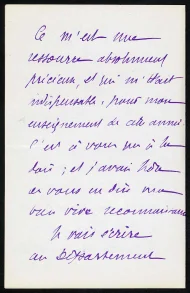 Ce m'est une
ressource absolument
précieuse, et qui m'était
indispensable, pour mon
enseignement de cette année.
C'est à vous que je la
dois ; et j'avais hâte
de vous en dire ma
bien vive reconnaissance.
Je vais écrire
au Département